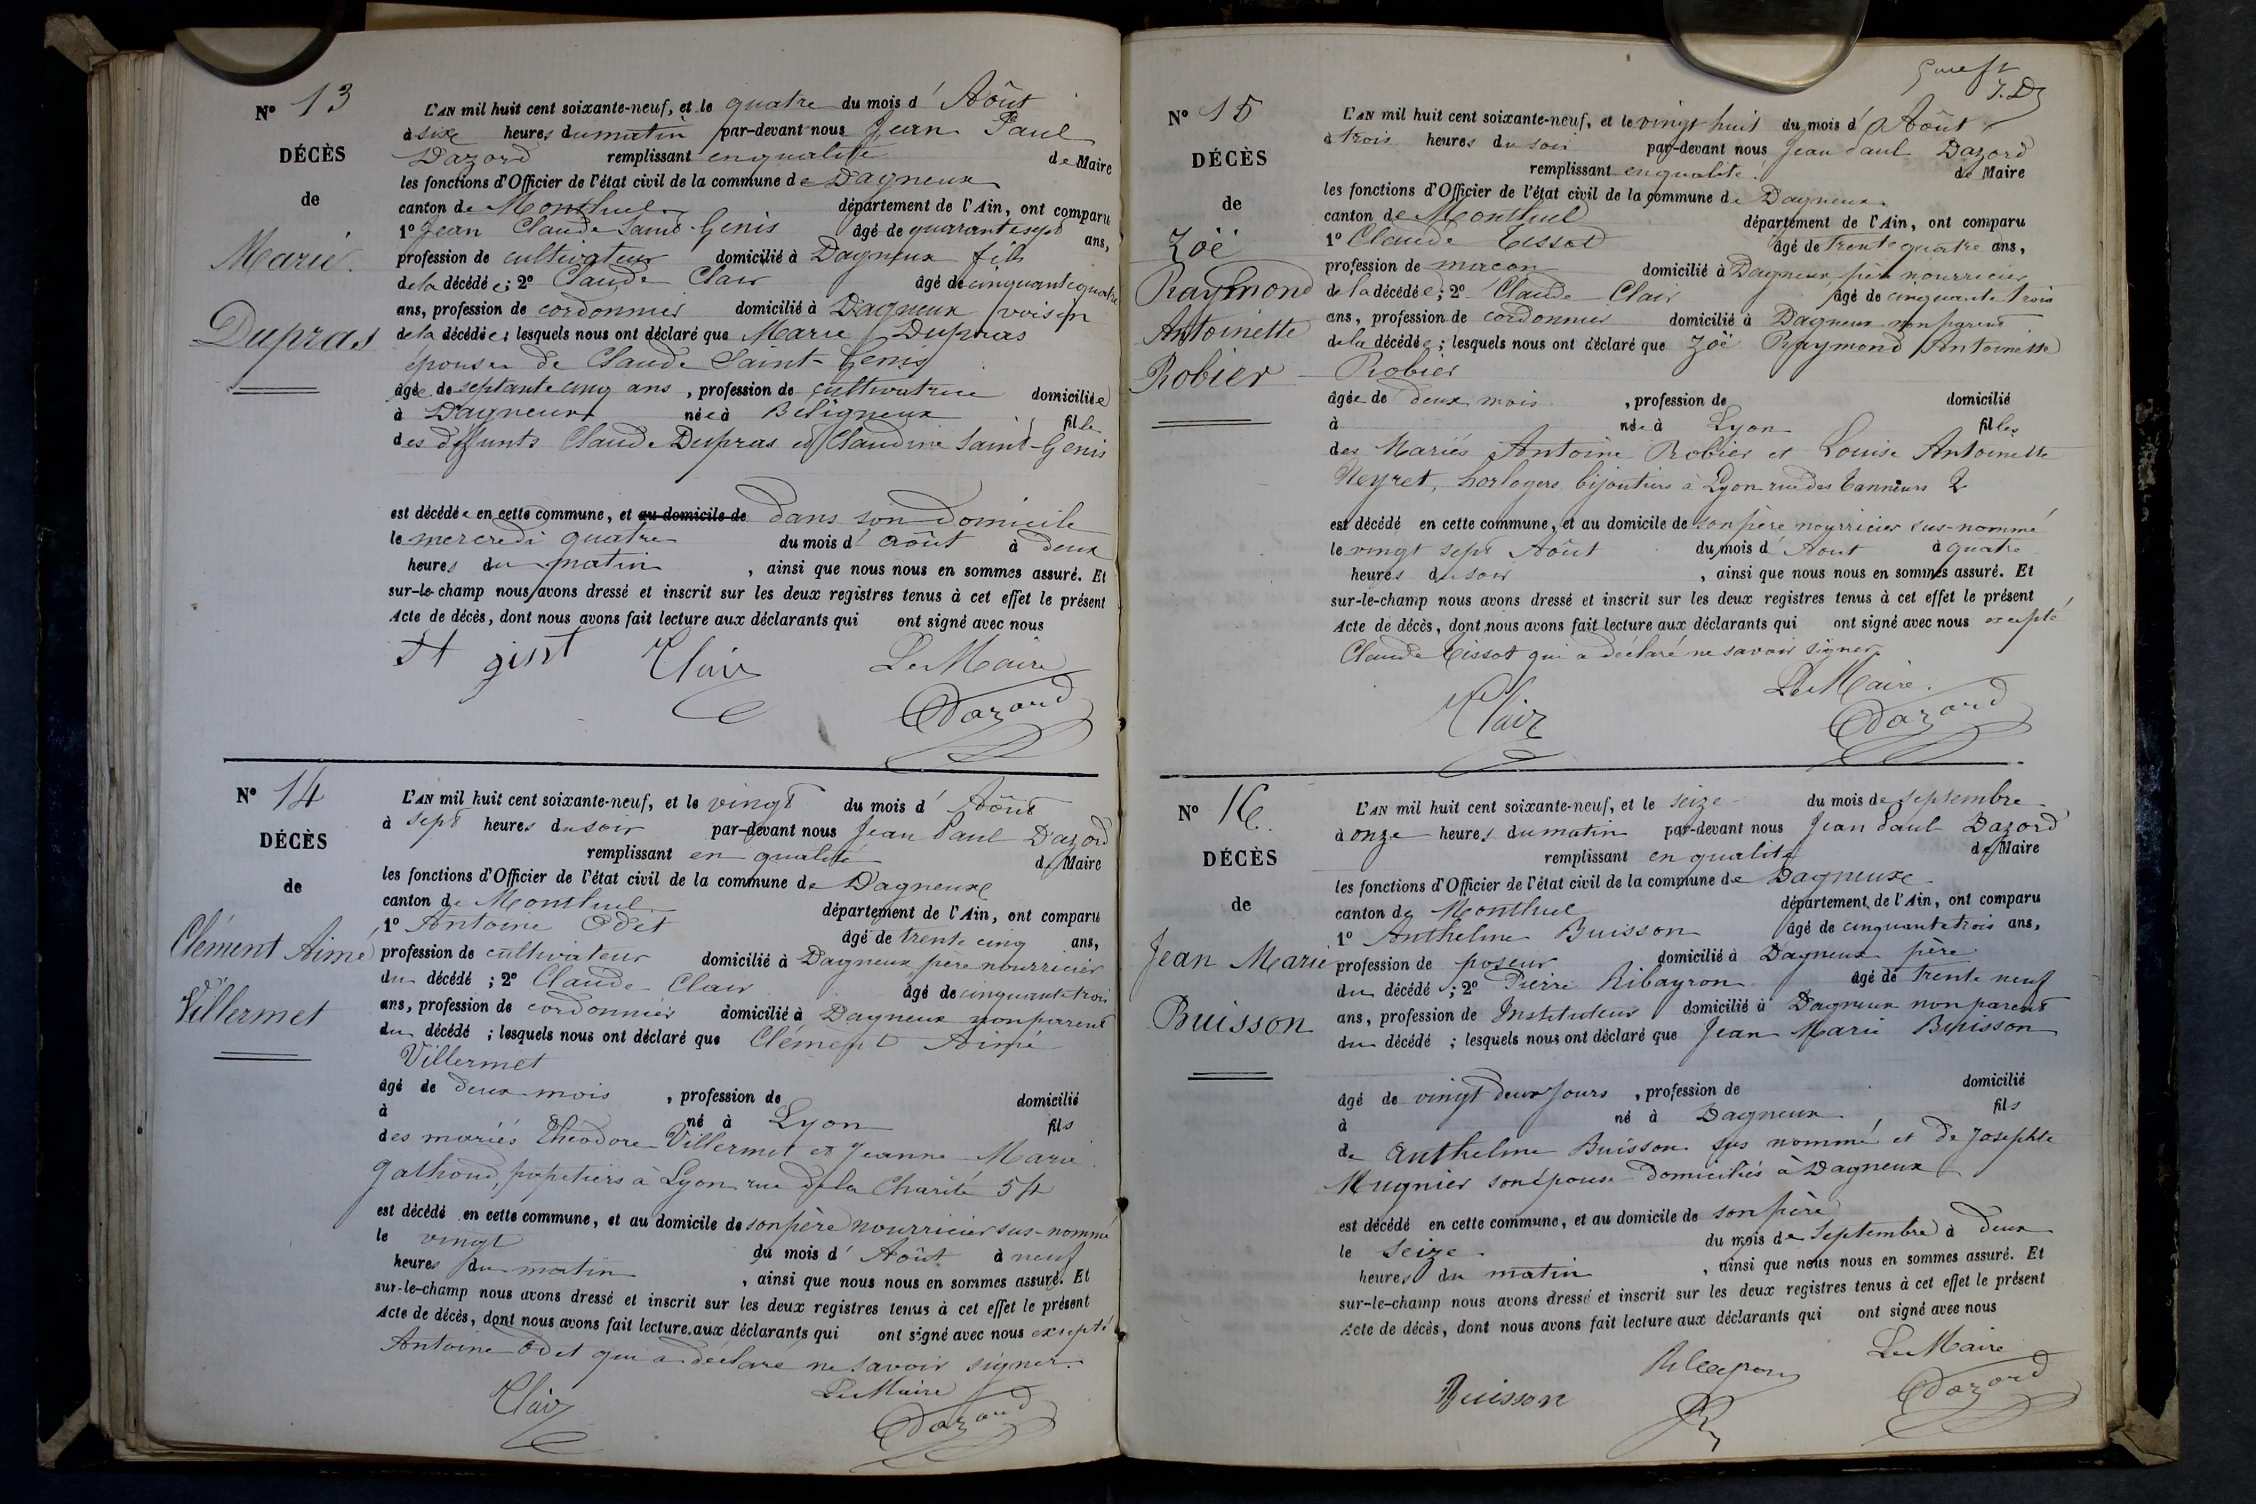 Nº 13
DÉCÈS
de
Marie
Dupras
L'AN mil huit cent soixante-neuf, et le quatre du mois d' Août
à six heures du matin par-devant nous Jean Paul
Dazord remplissant en qualité de Maire
les fonctions d'Officier de l'état civil de la commune de Dagneux
canton de Montluel département de l'Ain, ont comparu
1º Jean Claude Saint-Genis âgé de quarante sept ans,
profession de cultivateur domicilié à Dagneux fils
de la décédée; 2º Claude Clair âgé de cinquante quatre
ans, profession de cordonnier domicilié à Dagneux voisin
de la décédée; lesquels nous ont déclaré que Marie Dupras
épouse de Claude Saint-Genis
âgée de septante cinq ans, profession de cultivatrice domiciliée
à Dagneux née à Béligneux fille
des défunts Claude Dupras et Claudine Saint-Genis
est décédée en cette commune, et au domicile de dans son domicile
le mercredi quatre du mois d' août à deux
heures du matin, ainsi que nous nous en sommes assuré. Et
sur-le-champ nous avons dressé et inscrit sur les deux registres tenus à cet effet le présent
Acte de décès, dont nous avons fait lecture aux déclarants qui ont signé avec nous
St Clair Le Maire
Dazord
Nº 14
DÉCÈS
de
Clément Aimé
Villermet
L'AN mil huit cent soixante-neuf, et le vingt du mois d' Août
à sept heures du soir par-devant nous Jean Paul Dazord
remplissant en qualité de Maire
les fonctions d'Officier de l'état civil de la commune de Dagneux
canton de Montluel département de l'Ain, ont comparu
1º Antoine Odet âgé de trente cinq ans,
profession de cultivateur domicilié à Dagneux père nourricier
du décédé; 2º Claude Clair âgé de cinquante trois
ans, profession de cordonnier domicilié à Dagneux non parent
du décédé; lesquels nous ont déclaré que Clément Aimé
Villermet
âgé de deux mois, profession de domicilié
à né à Lyon fils
des mariés Théodore Villermet et Jeanne Marie
Gathoud, papetiers à Lyon rue de la Charité
est décédé en cette commune, et au domicile de son père nourricier sus-nommé
le vingt du mois d' Août à neuf
heures du matin, ainsi que nous nous en sommes assuré. Et
sur-le-champ nous avons dressé et inscrit sur les deux registres tenus à cet effet le présent
Acte de décès, dont nous avons fait lecture aux déclarants qui ont signé avec nous excepté
Antoine Odet qui a déclaré ne savoir signer.
Clair Le Maire
Dazord
Nº 15
DÉCÈS
de
Zöé
Raymond
Antoinette
Robier
L'AN mil huit cent soixante-neuf, et le vingt huit du mois d' Août
à trois heures du soir par-devant nous Jean Paul Dazord
remplissant en qualité de Maire
les fonctions d'Officier de l'état civil de la commune de Dagneux
canton de Montluel département de l'Ain, ont comparu
1º Claude Tissot âgé de trente quatre ans,
profession de maçon domicilié à Dagneux, père nourricier
de la décédée; 2º Claude Clair âgé de cinquante trois
ans, profession de cordonnier domicilié à Dagneux non parent
de la décédée; lesquels nous ont déclaré que Zöé Raymond Antoinette
Robier
âgée de deux mois, profession de domicilié
à née à Lyon filles
des Mariés Antoine Robier et Louise Antoinette
Neyret, horlogers bijoutiers à Lyon rue des Tanneurs 2
est décédé en cette commune, et au domicile de son père nourricier sus-nommé
le vingt sept Août du mois d' Août à quatre
heures du soir, ainsi que nous nous en sommes assuré. Et
sur-le-champ nous avons dressé et inscrit sur les deux registres tenus à cet effet le présent
Acte de décès, dont nous avons fait lecture aux déclarants qui ont signé avec nous excepté
Claude Tissot qui a déclaré ne savoir signer.
Le Maire.
Clair Dazord
Nº 16
DÉCÈS
de
Jean Marie
Buisson
L'AN mil huit cent soixante-neuf, et le seize du mois de septembre
à onze heures du matin par-devant nous Jean Paul Dazord
remplissant en qualité de Maire
les fonctions d'Officier de l'état civil de la commune de Dagneux
canton de Montluel département de l'Ain, ont comparu
1º Anthelme Buisson âgé de cinquante trois ans,
profession de poseur domicilié à Dagneux père
du décédé; 2º Pierre Ribayron âgé de trente neuf
ans, profession de Instituteur domicilié à Dagneux non parent
du décédé; lesquels nous ont déclaré que Jean Marie Buisson
âgé de vingt deux jours, profession de domicilié
à né à Dagneux fils
de Anthelme Buisson sus nommé et de Josephte
Mugnier son épouse domiciliés à Dagneux
est décédé en cette commune, et au domicile de son père
le seize du mois de Septembre à deux
heures du matin, ainsi que nous nous en sommes assuré. Et
sur-le-champ nous avons dressé et inscrit sur les deux registres tenus à cet effet le présent
Acte de décès, dont nous avons fait lecture aux déclarants qui ont signé avec nous
Le Maire
Buisson Ribayron Dazord